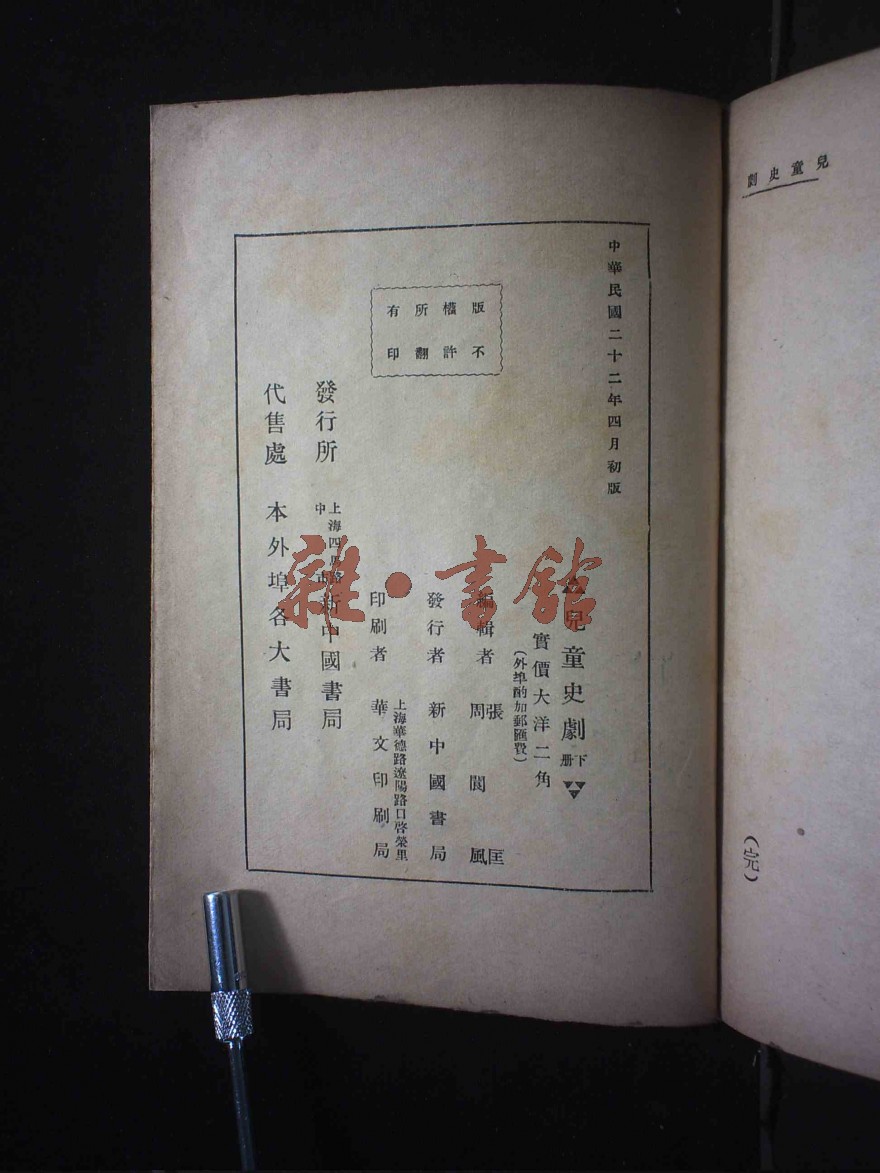 兒童史劇
(完)
中華民國二十二年四月初版
兒童史劇 下册
實價大洋二角
(外埠酌加郵匯費)
編輯者 張匡 周閬風
發行者 新中國書局
印刷者 上海華德路遼陽路口啓榮里 華文印刷局
版權所有
不許翻印
發行所 上海四馬路中市 新中國書局
代售處 本外埠各大書局
雜·書館